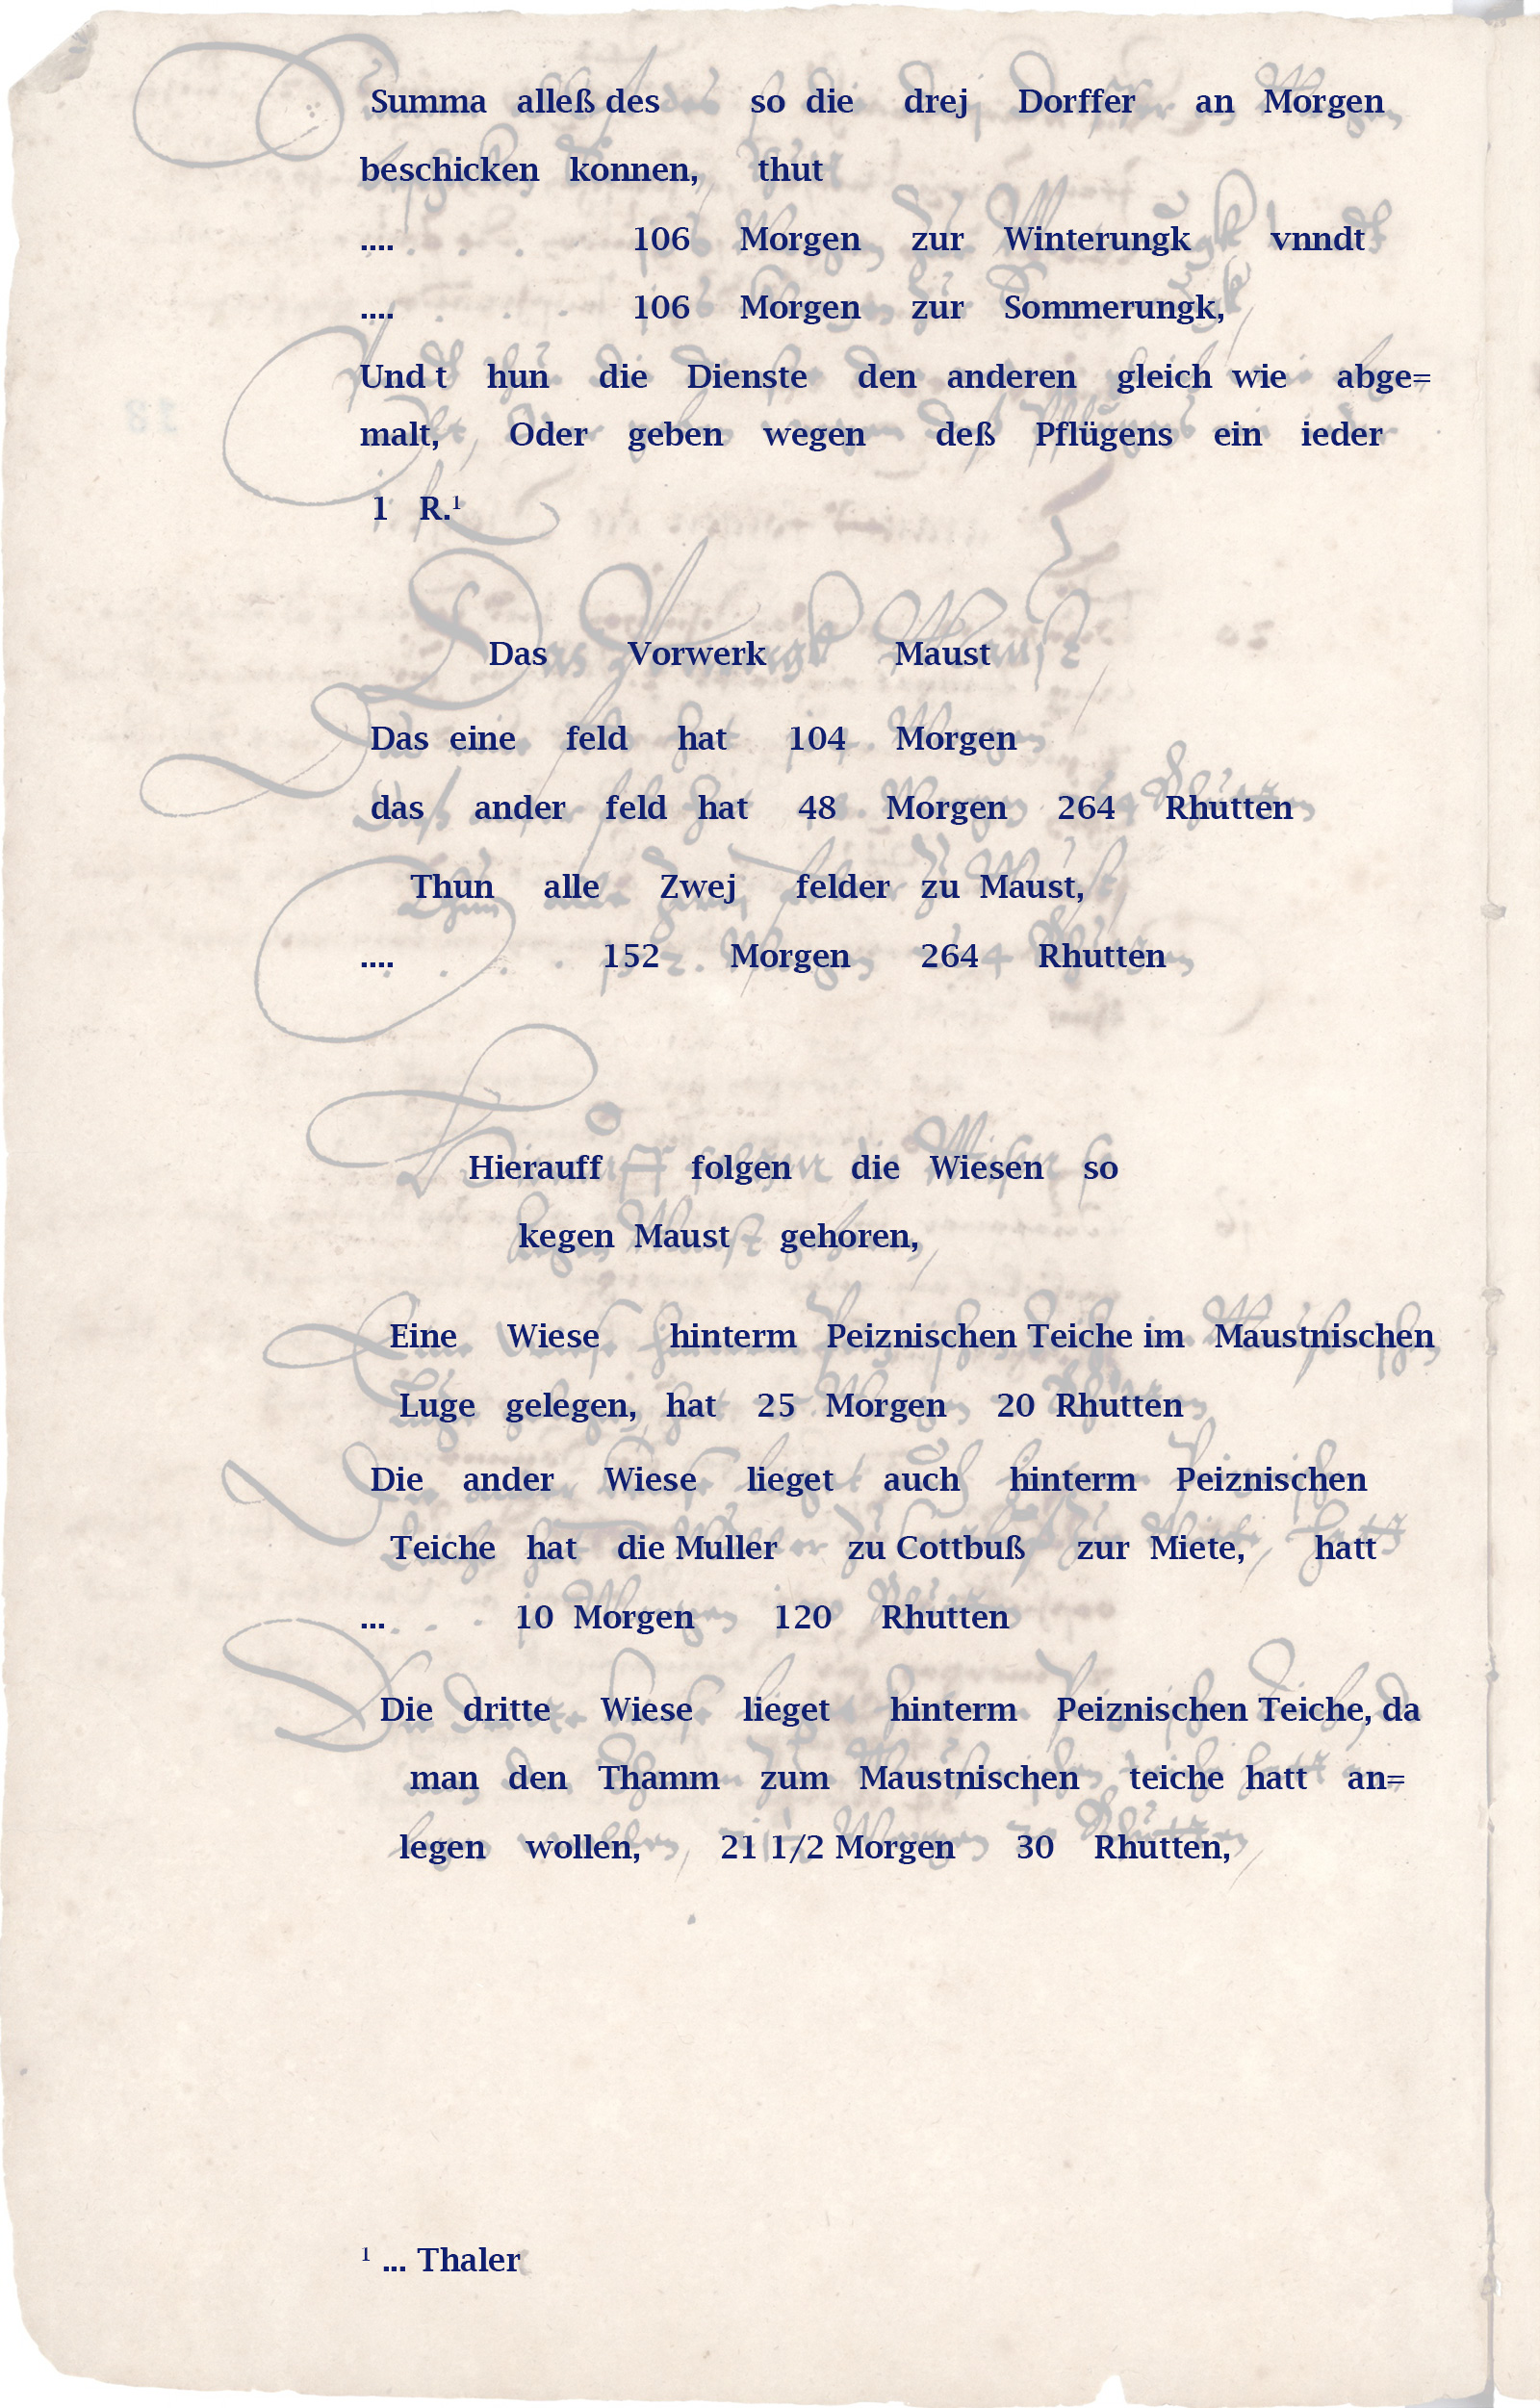 Summa alleß des so die drej Dorffer an Morgen
beschicken konnen, thut
.... 106 Morgen zur Winterungk vnndt
.... 106 Morgen zur Sommerungk,
Und t hun die Dienste den anderen gleich wie abge=
malt, Oder geben wegen deß Pflügens ein ieder
1 R.¹
Das Vorwerk Maust
Das eine feld hat 104 Morgen
das ander feld hat 48 Morgen 264 Rhutten
Thun alle Zwej felder zu Maust,
.... 152 Morgen 264 Rhutten
Hierauff folgen die Wiesen so
kegen Maust gehoren,
Eine Wiese hinterm Peiznischen Teiche im Maustnischen
Luge gelegen, hat 25 Morgen 20 Rhutten
Die ander Wiese lieget auch hinterm Peiznischen
Teiche hat die Muller zu Cottbuß zur Miete, hatt
... 10 Morgen 120 Rhutten
Die dritte Wiese lieget hinterm Peiznischen Teiche, da
man den Thamm zum Maustnischen teiche hatt an=
legen wollen, 21 1/2 Morgen 30 Rhutten,
¹ ... Thaler